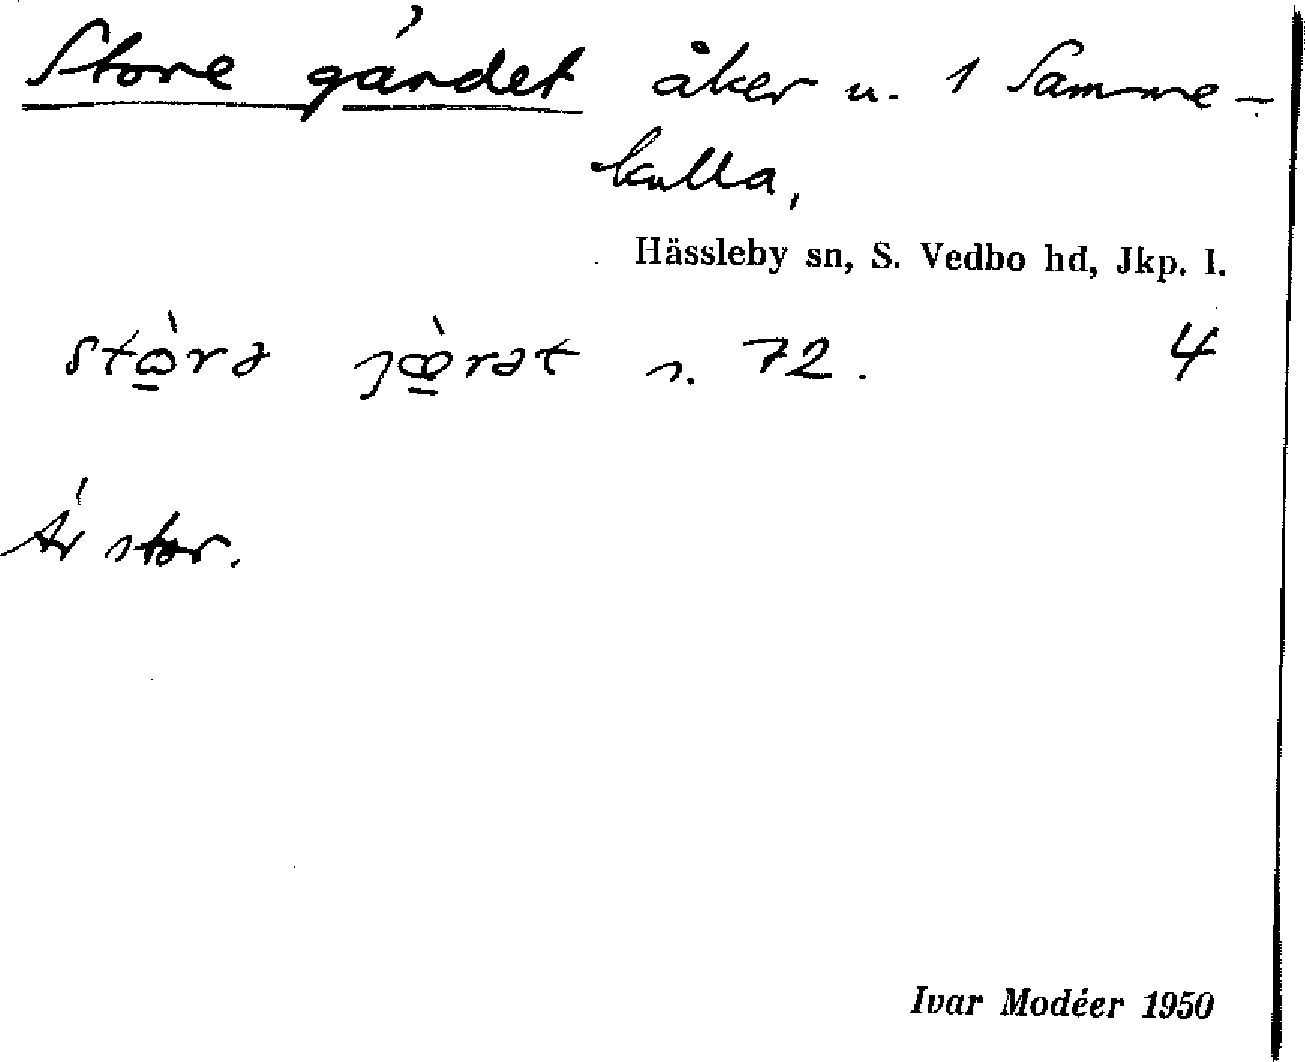 Store gärdet åker u. 1 Samme-
kulla,
Hässleby sn, S. Vedbo hd, Jkp. l.
stὼ̲rə jœ̲̀rət s. 72. 4
Är stor.
Ivar Modéer 1950